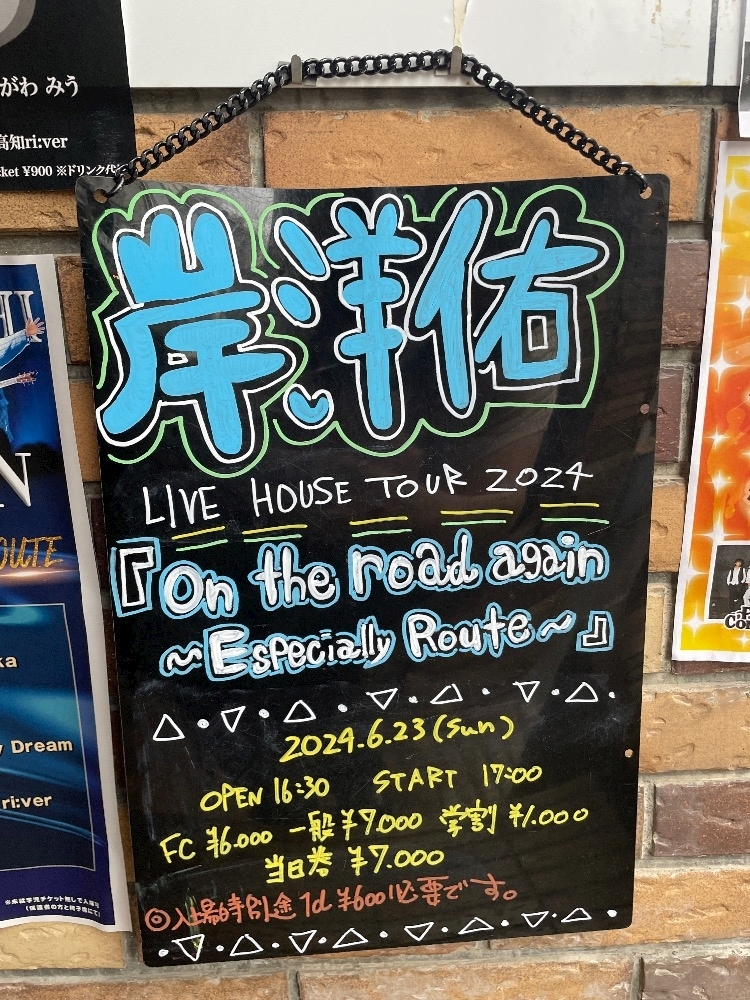 がわ みう
高知ri:ver
cket ¥900 ※ドリンク代
岸洋佑
LIVE HOUSE TOUR 2024
『On the road again
~Especially Route~』
2024.6.23(Sun)
OPEN 16:30 START 17:00
FC ¥6.000 一般¥7.000 学割 ¥1.000
当日券 ¥7.000
◎入場時別途1d ¥600必要です。
OUTE
ka
y Dream
ri:ver
※未就学児チケット無しで入場可
(保護者の方と椅子席にて)